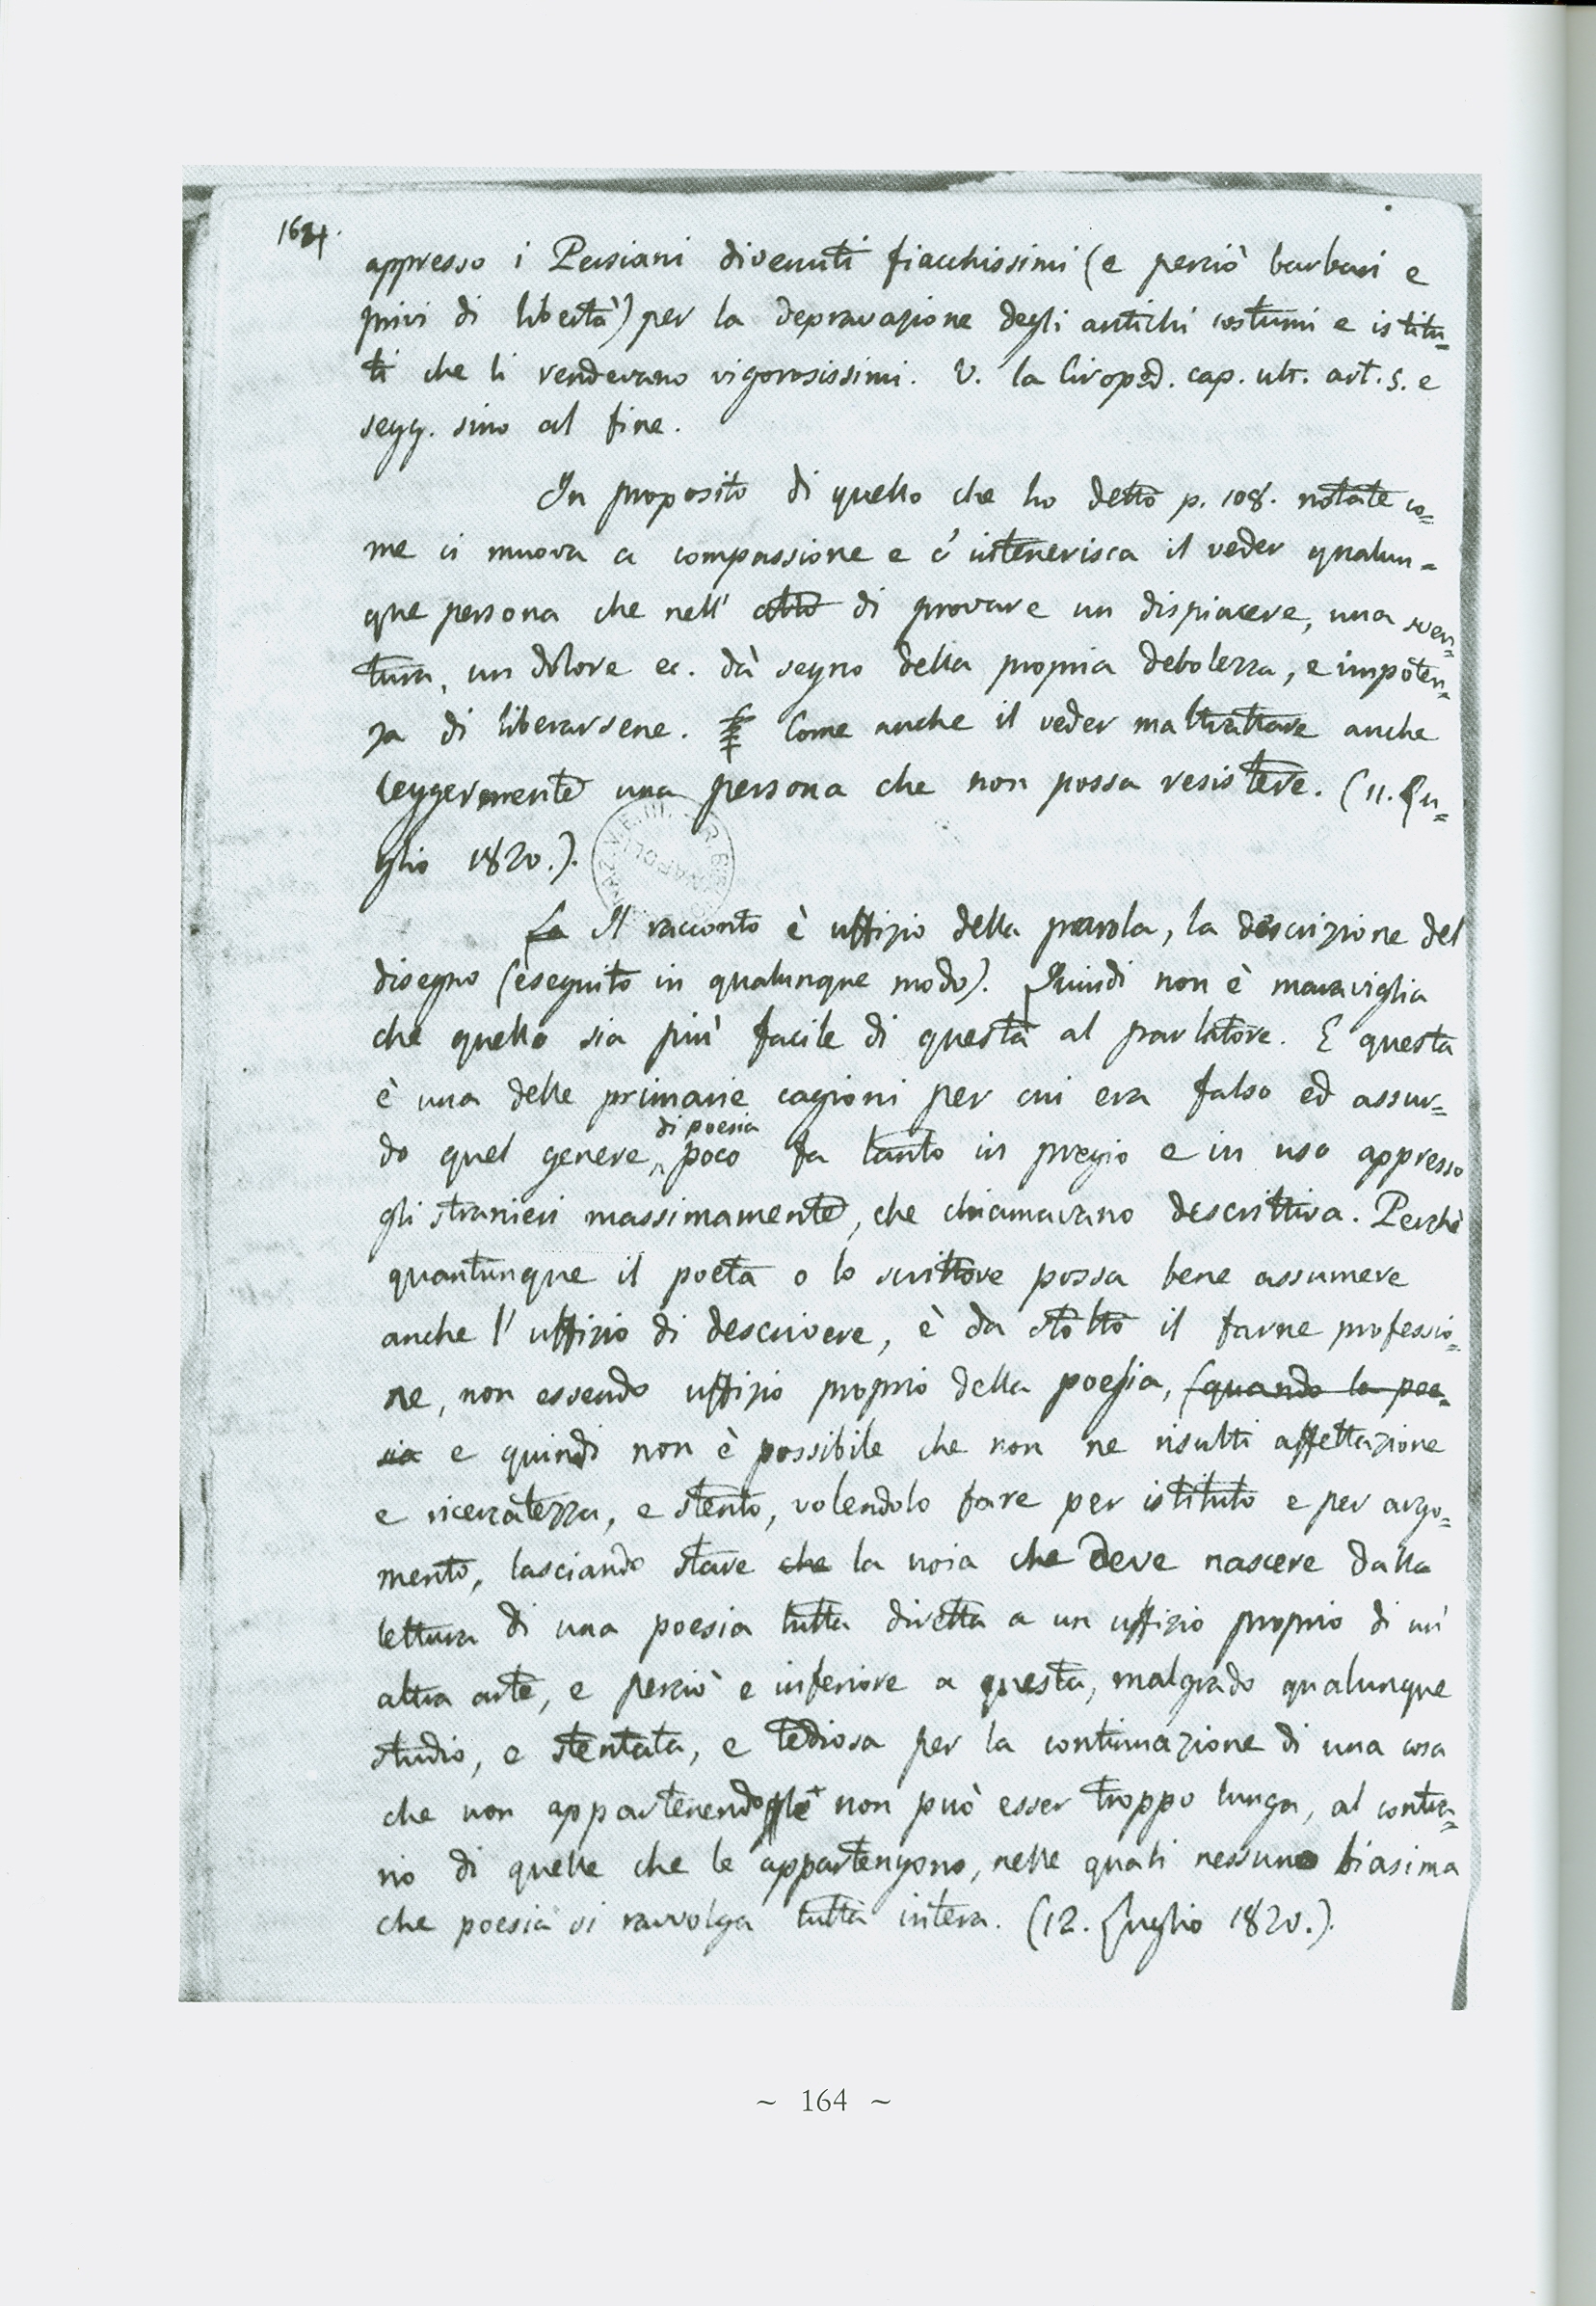 164.
appresso i Persiani divenuti fiacchissimi (e perciò barbari e
privi di libertà) per la depravazione degli antichi costumi e istitu=
ti che li rendevano vigorosissimi. V. la Ciroped. cap. ult. art. 5. e
segg. sino al fine.
In proposito di quello che ho detto p. 108. notate co=
me ci muova a compassione e c'intenerisca il veder qualun=
que persona che nell'atto di provare un dispiacere, una sven=
tura, un dolore ec. dà segno della propria debolezza, e impoten=
za di liberarsene. Come anche il veder maltrattare anche
leggermente una persona che non possa resistere. (11. Lu=
glio 1820.).
La Il racconto è uffizio della parola, la descrizione del
disegno (eseguito in qualunque modo). Quindi non è maraviglia
che quello sia più facile di questa al parlatore. E questa
è una delle primarie cagioni per cui era falso ed assur=
do quel genere di poesia poco fa tanto in pregio e in uso appresso
gli stranieri massimamente, che chiamavano descrittiva. Perchè
quantunque il poeta o lo scrittore possa bene assumere
anche l'uffizio di descrivere, è da stolto il farne professio=
ne, non essendo uffizio proprio della poesia, (quando la poe=
sia e quindi non è possibile che non ne risulti affettazione
e ricercatezza, e stento, volendolo fare per istituto e per argo=
mento, lasciando stare che la noia che deve nascere dalla
lettura di una poesia tutta diretta a un uffizio proprio di un'
altra arte, e perciò e inferiore a questa, malgrado qualunque
studio, e stentata, e tediosa per la continuazione di una cosa
che non appartenendole non può esser troppo lunga, al contra=
rio di quelle che le appartengono, nelle quali nessuno biasima
che poesia si ravvolga tutta intera. (12. Luglio 1820.).
~ 164 ~